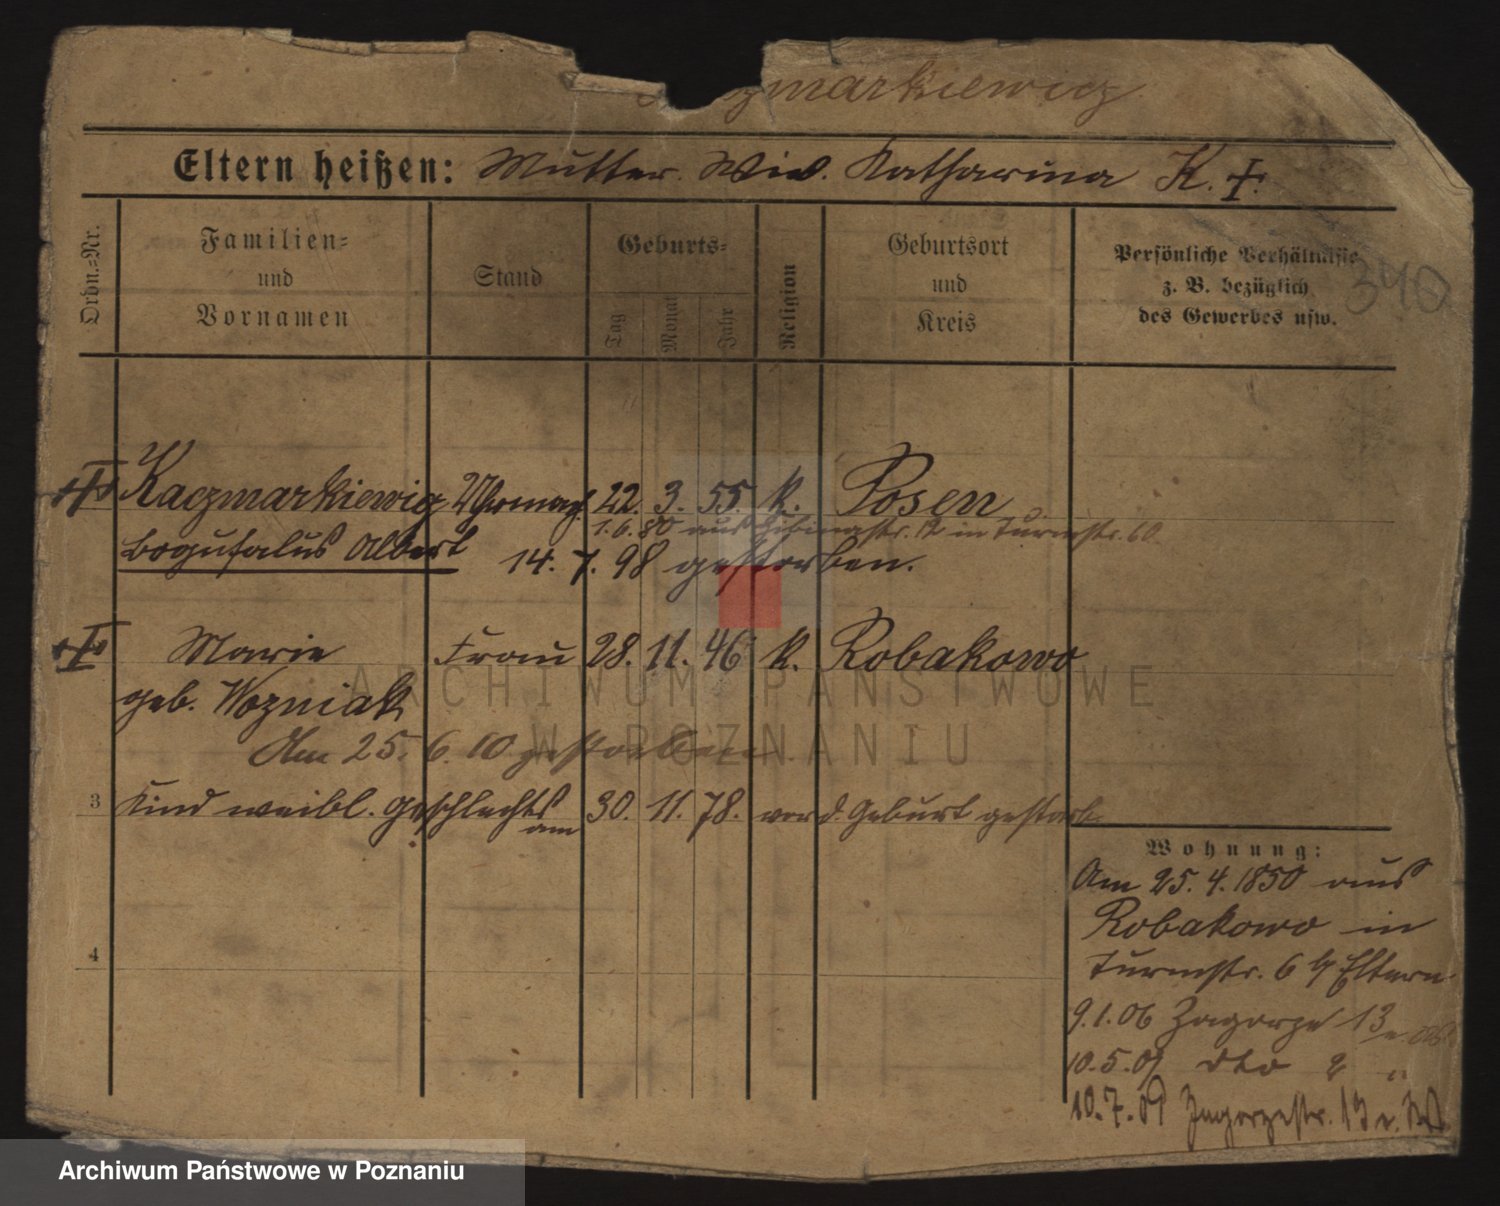 Kaczmarkiewicz
Eltern heißen: Mutter. Wid. Katharina K. +.
Ordn.=Nr.
Familien=
und
Vornamen
Stand
Geburts=
Tag
Monat
Jahr
Religion
Geburtsort
und
Kreis
Persönliche Verhältnisse
z. B. bezüglich
des Gewerbes usw.
340
Kaczmarkiewicz Uhrmach. 22. 3. 55. k. Posen
1. 6. 80 aus 12 in Turmstr. 60
Bogufalus Albert 14. 7. 98 gestorben.
Marie Frau 28. 11. 46 k. Robakowo
geb. Wozniak
Am 25. 6. 10 gestorben.
3 Kind weibl. Geschlechts am 30. 11. 78. vor d. Geburt gestorb.
4
Wohnung:
Am 25. 4. 1850 aus
Robakowo in
Turmstr. 6 Eltern
9.1.06 Zagorze 13
10.5.07 dto 2 "
10.7.09 Zagorzestr. 13
ARCHIWUM PAŃSTWOWE
W POZNANIU
Archiwum Państwowe w Poznaniu